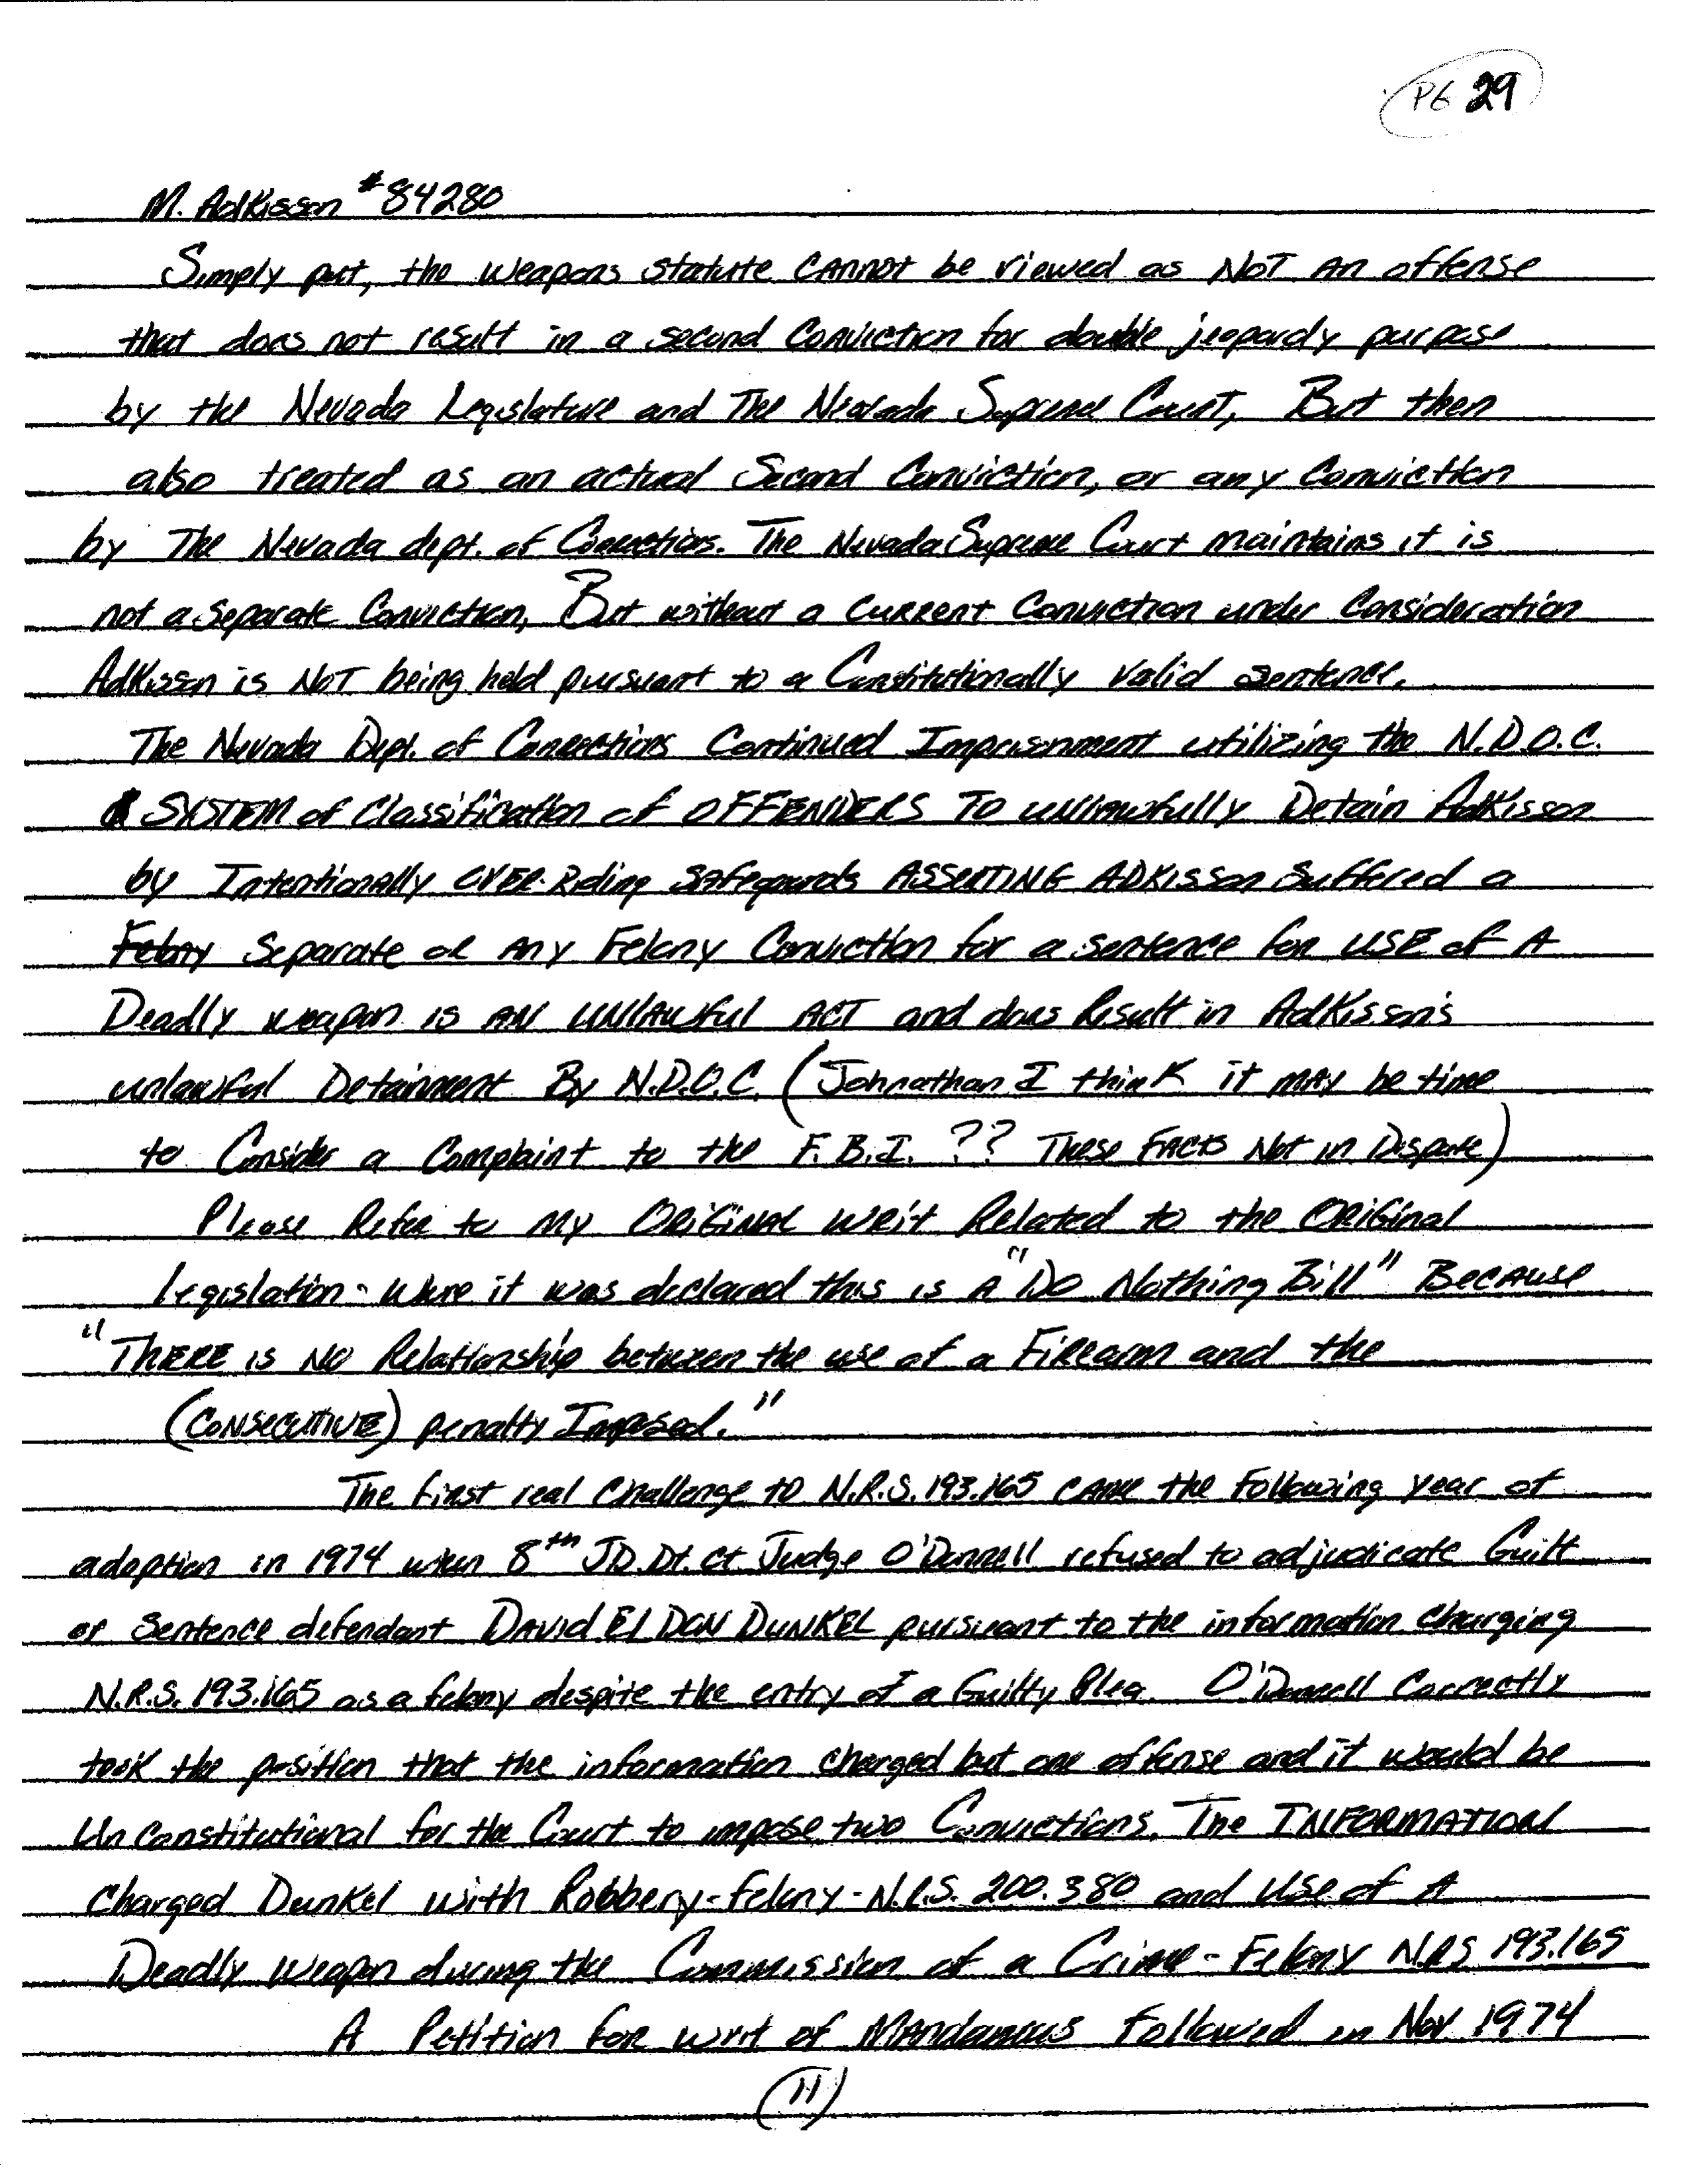 PG 29
M. Adkisson #84280
Simply put, the weapons statute CANNOT be viewed as NOT AN offense
that does not result in a second Conviction for double jeopardy purpose
by the Nevada Legislature and The Nevada Supreme Court, But then
also treated as an actual Second Conviction, or any Conviction
by The Nevada dept. of Corrections. The Nevada Supreme Court maintains it is
not a separate Conviction, But without a CURRENT Conviction under Consideration
Adkisson is NOT being held pursuant to a Constitutionally Valid sentence.
The Nevada Dept. of Corrections Continued Imprisonment utilizing the N.D.O.C.
SYSTEM of Classification of OFFENDERS TO unlawfully Detain Adkisson
by Intentionally OVER-Riding Safeguards ASSERTING ADKISSON Suffered a
Felony Separate or ANY Felony Conviction for a sentence for USE of A
Deadly weapon is AN UNLAWful ACT and does Result in Adkisson's
unlawful Detainment By N.D.O.C. (Johnathan I think it MAY be time
to Consider a Complaint to the F.B.I. ?? These FACTS Not in Dispute)
Please Refer to My ORiGiNAL WRit Related to the ORiGinal
legislation - where it was declared this is A "DO Nothing Bill" BECAUSE
"THERE is NO Relationship between the use of a FiREarm and the
(CONSECUTIVE) penalty Imposed."
The first real Challenge to N.R.S. 193.165 CAME the Following year of
adoption in 1974 when 8th JD. Dt. Ct. Judge O'Donnell refused to adjudicate Guilt
or Sentence defendant DAvid ElDON DUNKEL pursuant to the information Charging
N.R.S. 193.165 as a felony despite the entry of a Guilty Plea. O'Donnell Correctly
took the position that the information Charged but one offense and it would be
UnConstitutional for the Court to impose two Convictions. The INFORMATION
Charged Dunkel with Robbery-Felony-N.R.S. 200.380 and Use of A
Deadly Weapon during the Commission of a Crime - Felony NRS 193.165
A Petition for writ of MAndamus Followed in Nov 1974
11